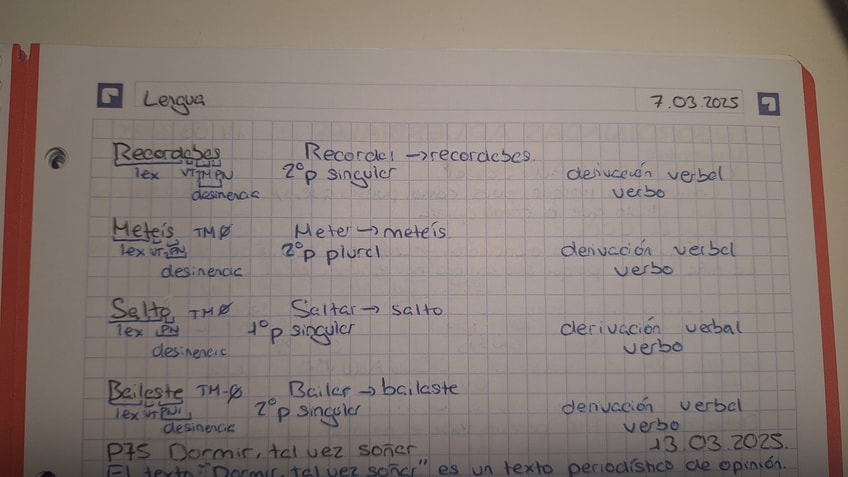 Lengua 7.03.2025
Recordabas Recordar → recordabas.
lex VT TM PN 2º p singular derivación verbal
desinencia verbo
Meteis TM Ø Meter → meteís
lex VT PN 2º p plural derivación verbal
desinencia verbo
Salto TM Ø Saltar → salto
lex PN 1º p singular derivación verbal
desinencia verbo
Bailaste TM-Ø Bailar → bailaste
lex VT PN 2º p singular derivación verbal
desinencia verbo
P75 Dormir, tal vez soñar 13.03.2025.
El texto "Dormir, tal vez soñar" es un texto periodístico de opinión.